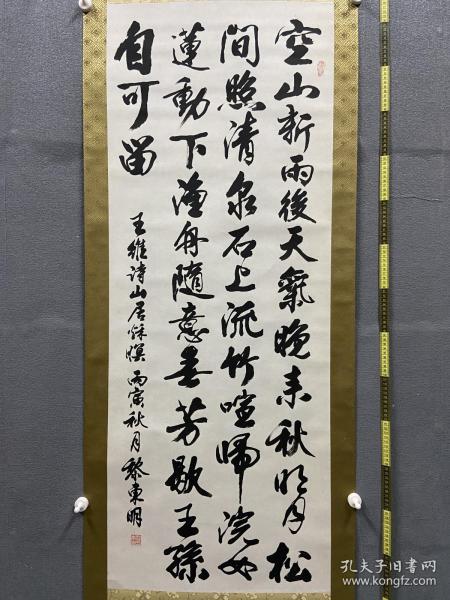 空山新雨後天氣晚来秋明月松
間照清泉石上流竹喧歸浣女
蓮動下漁舟隨意春芳歇王孫
自可留
王維诗山居秋暝 丙寅秋月 黎東明
孔夫子旧书网
www.kongfz.com